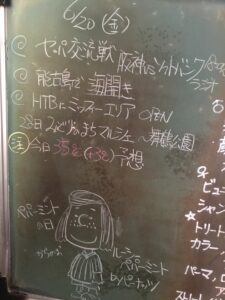 6/20 (金)
@ セパ交流戦 阪神vsソフトバンク
@ 能古島で 海開き
@ HTBにミッフィーエリア OPEN
28日 みどりのまちマルシェ 〜舞鶴公園
注 今日 35℃ (+3℃) 予想
ペパーミント
の日
ルーシー
ペパーミント
ピーナッツ
ビュー
シャン
トリート
カラー
パーマ